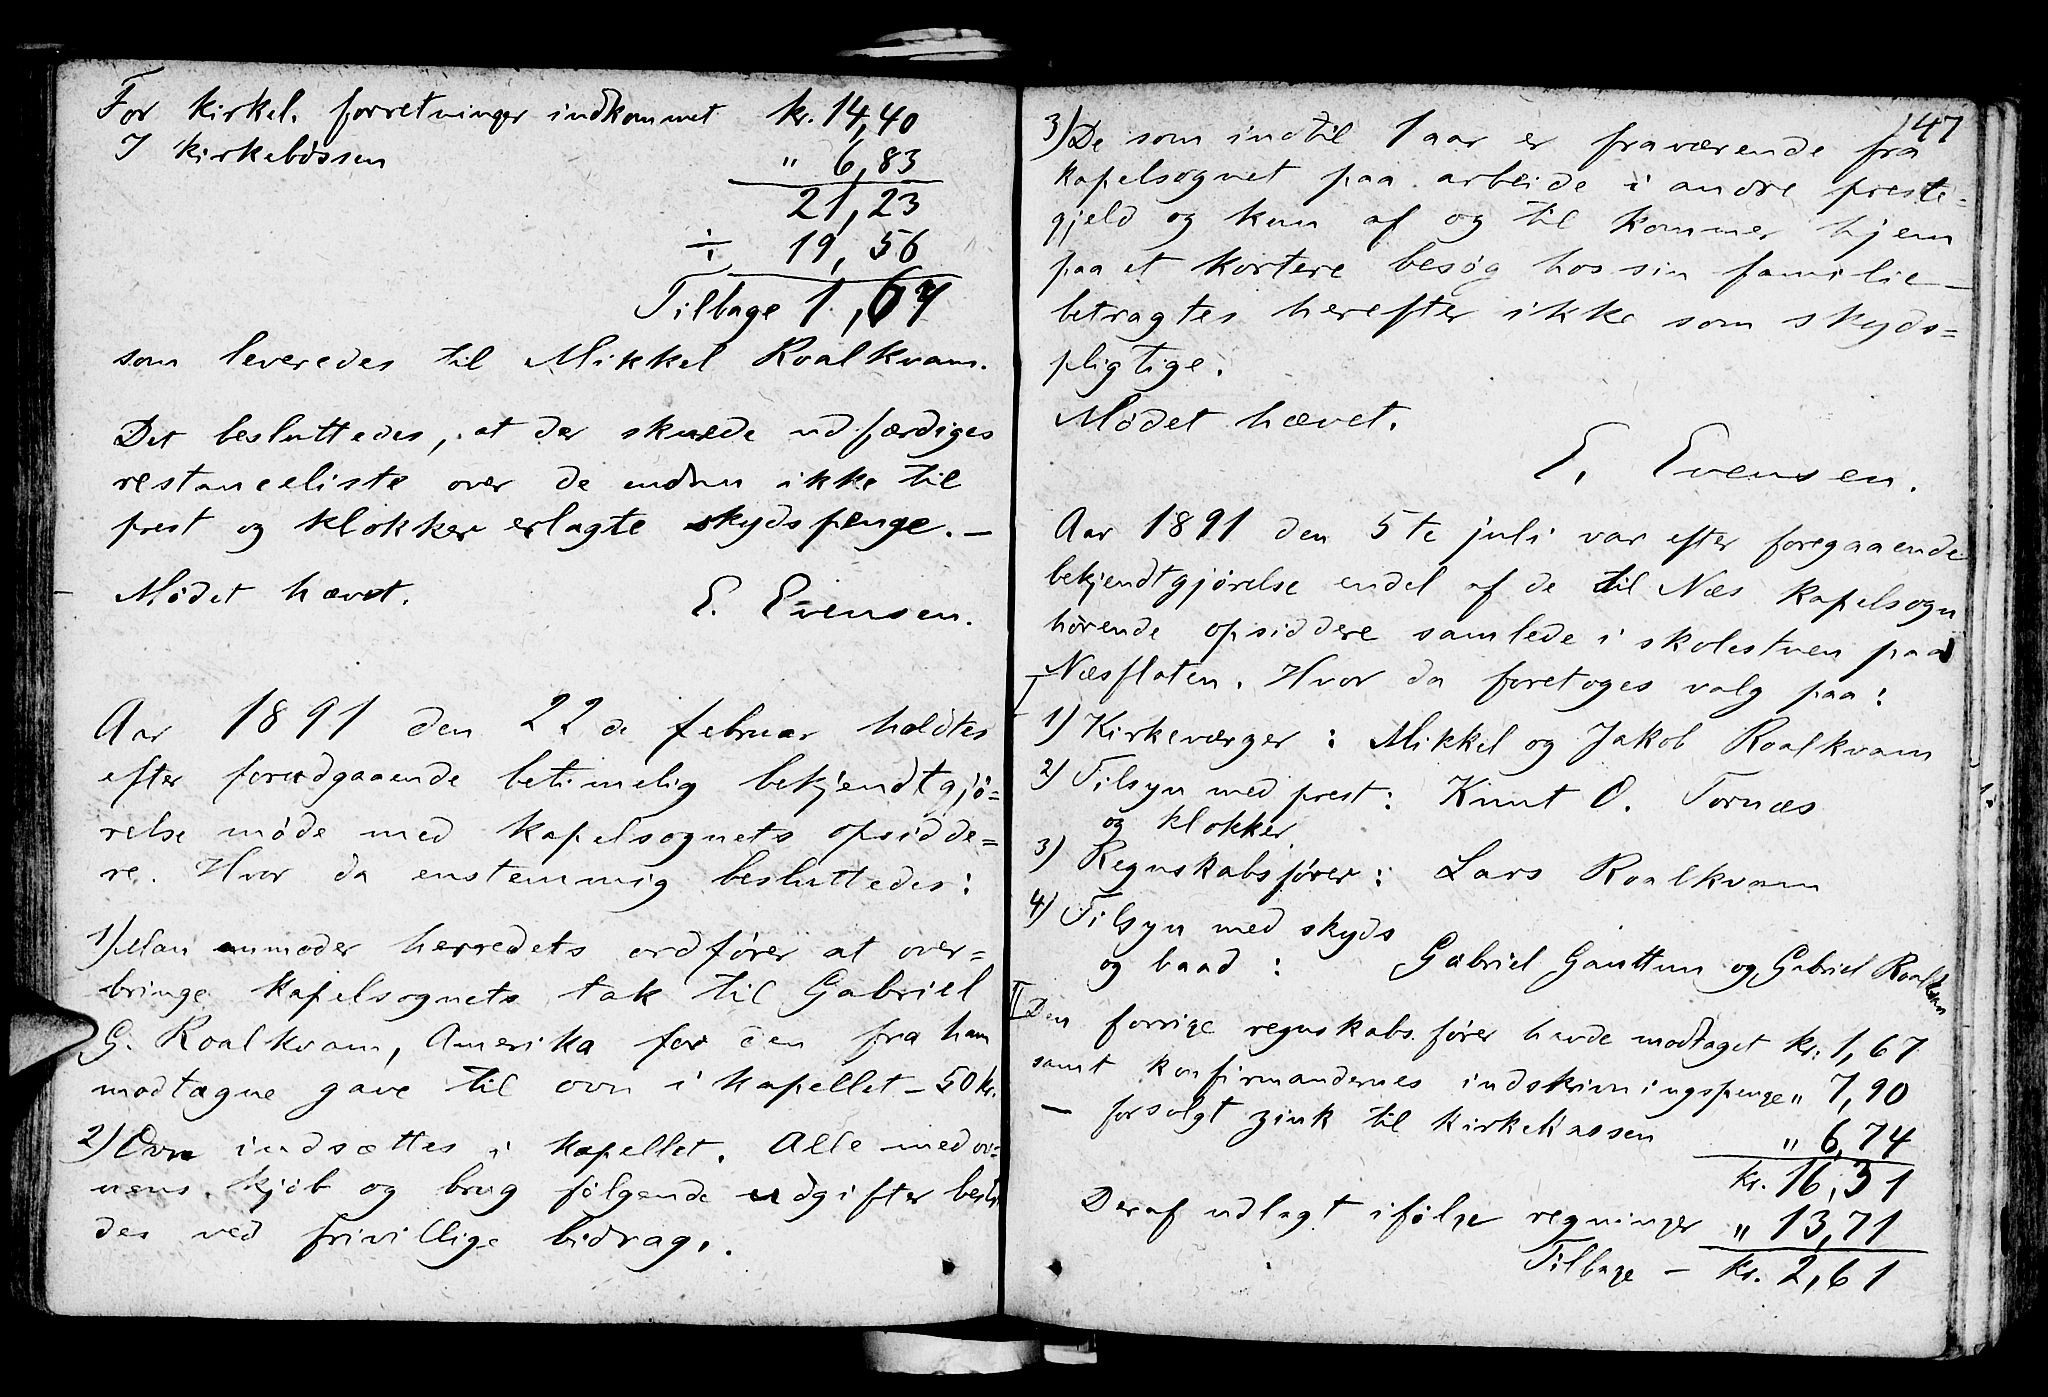 For kirkel. forretninger indkommet kr. 14,40
I kirkebøssen " 6,83
21,23
÷ 19,56
Tilbage 1,67
som leveredes til Mikkel Roalkvam.
Det besluttedes, at der skulde udfærdiges
restanceliste over de endnu ikke til
prest og klokker erlagte skydspenge. —
Mødet hævet. E. Evensen.
Aar 1891 den 22de februar holdtes
efter forudgaaende betimelig bekjendtgjø=
relse møde med kapelsognets opsidde=
re. Hvor da enstemmig besluttedes:
1) Man anmoder herredets ordfører at over=
bringe kapelsognets tak til Gabriel
G. Roalkvam, Amerika for den fra ham
modtagne gave til ovn i kapellet – 50 kr.
2) Ovn indsættes i kapellet. Alle med ov=
nens kjøb og brug følgende udgifter bestri
des ved frivillige bidrag.
147
3) De som indtil 1 aar er fraværende fra
kapelsognet paa arbeide i andre preste=
gjeld og kun af og til kommer hjem
paa et kortere besøg hos sin familie —
betragtes herefter ikke som skyds=
pligtige.
Mødet hævet.
E. Evensen.
Aar 1891 den 5te juli var efter foregaaende
bekjendtgjørelse endel af de til Næs kapelsogn
hørende opsiddere samlede i skolestuen paa
Næsflaten. Hvor da foretoges valg paa:
I
1) Kirkeværger: Mikkel og Jakob Roalkvam
2) Tilsyn med prest: Knut O. Tornæs
og klokker
3) Regnskabsfører: Lars Roalkvam
4) Tilsyn med skyds
og baad: Gabriel Gauttun og Gabriel Roalkvam
II Den forrige regnskabsfører havde modtaget kr. 1,67
samt konfirmandernes indskrivningspenge " 7,90
— for solgt zink til kirkekassen " 6,74
kr. 16,31
Deraf udlagt ifølge regninger " 13,71
Tilbage – kr. 2,61